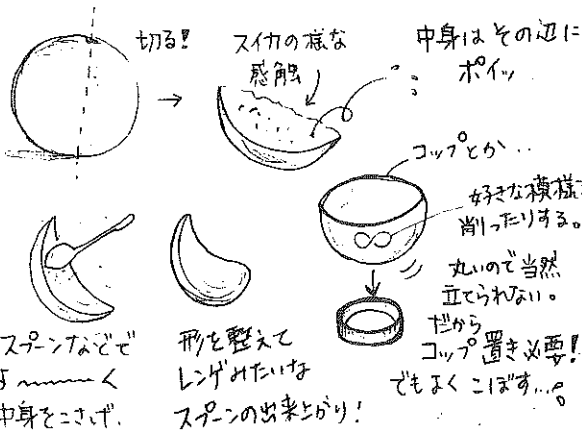 切る!
スイカの様な
感触
中身はその辺に
ポイッ
コップとか..
好きな模様を
削ったりする。
丸いので当然
立てられない。
だから
コップ置き必要!
でもよくこぼす...
スプーンなどで
よ〜〜〜く
中身をこさげ.
形を整えて
レンゲみたいな
スプーンの出来上がり!